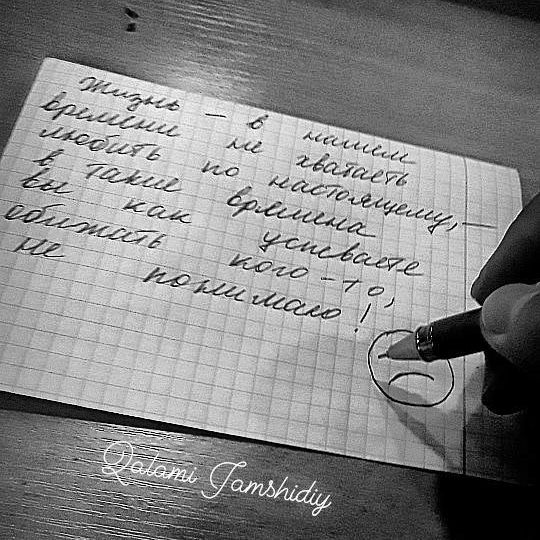 Жизнь – в нашем
времени не хватаеть
любить по настоящему, –
в такие времена
вы как успеваете
обижать кого-то,
не понимаю!
Qalami Jamshidiy